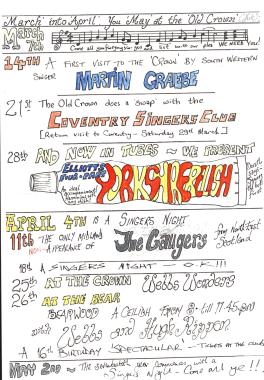 'March' into April', You 'May' at the Old Crown'
March
7th
Come all you
but
we
WE NEED You!
14TH A FIRST VISIT TO THE 'CROWN' BY SOUTH WESTERN
SINGER MARTIN GRAEBE
21st The Old Crown does a 'Swap' with the
COVENTRY SINGERS CLUB
[Return visit to Coventry - Saturday 29th March]
28th AND NOW IN TUBES ~ WE PRESENT
ELLIOTTS
FOUR-PART
YORKSHIRE RELISH
APRIL 4TH IS A SINGERS NIGHT
11th THE ONLY MIDLAND
APPEARANCE OF
The Gaugers
from North East
Scotland
18th A SINGERS NIGHT O.K!!!
25th AT THE CROWN Webbs Wonders
26th AT THE BEAR
BEARWOOD A CEILIDH from 8 till 11.45pm
with
Webbs and Hugh Rippon
A 16th BIRTHDAY SPECTACULAR - TICKETS AT THE CLUB
MAY 2nd
with a
Singers Night - Come all ye!!